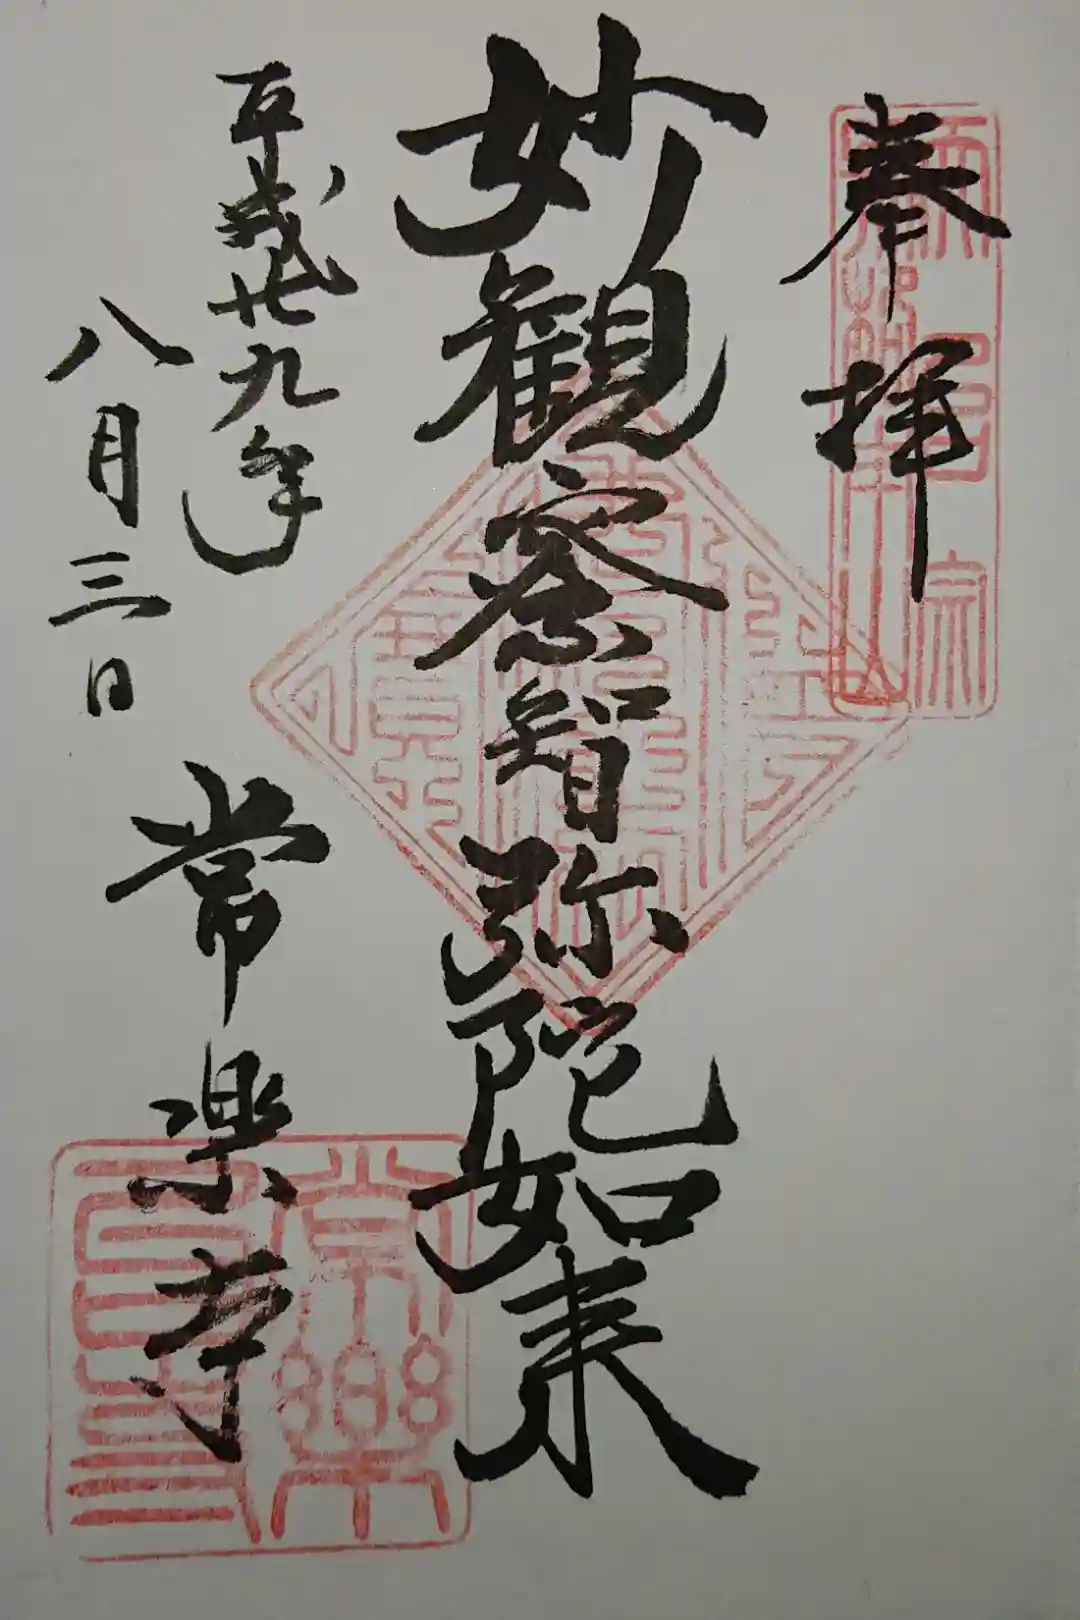 奉拝
妙観察智弥陀如来
平成廿九年
八月三日
常楽寺